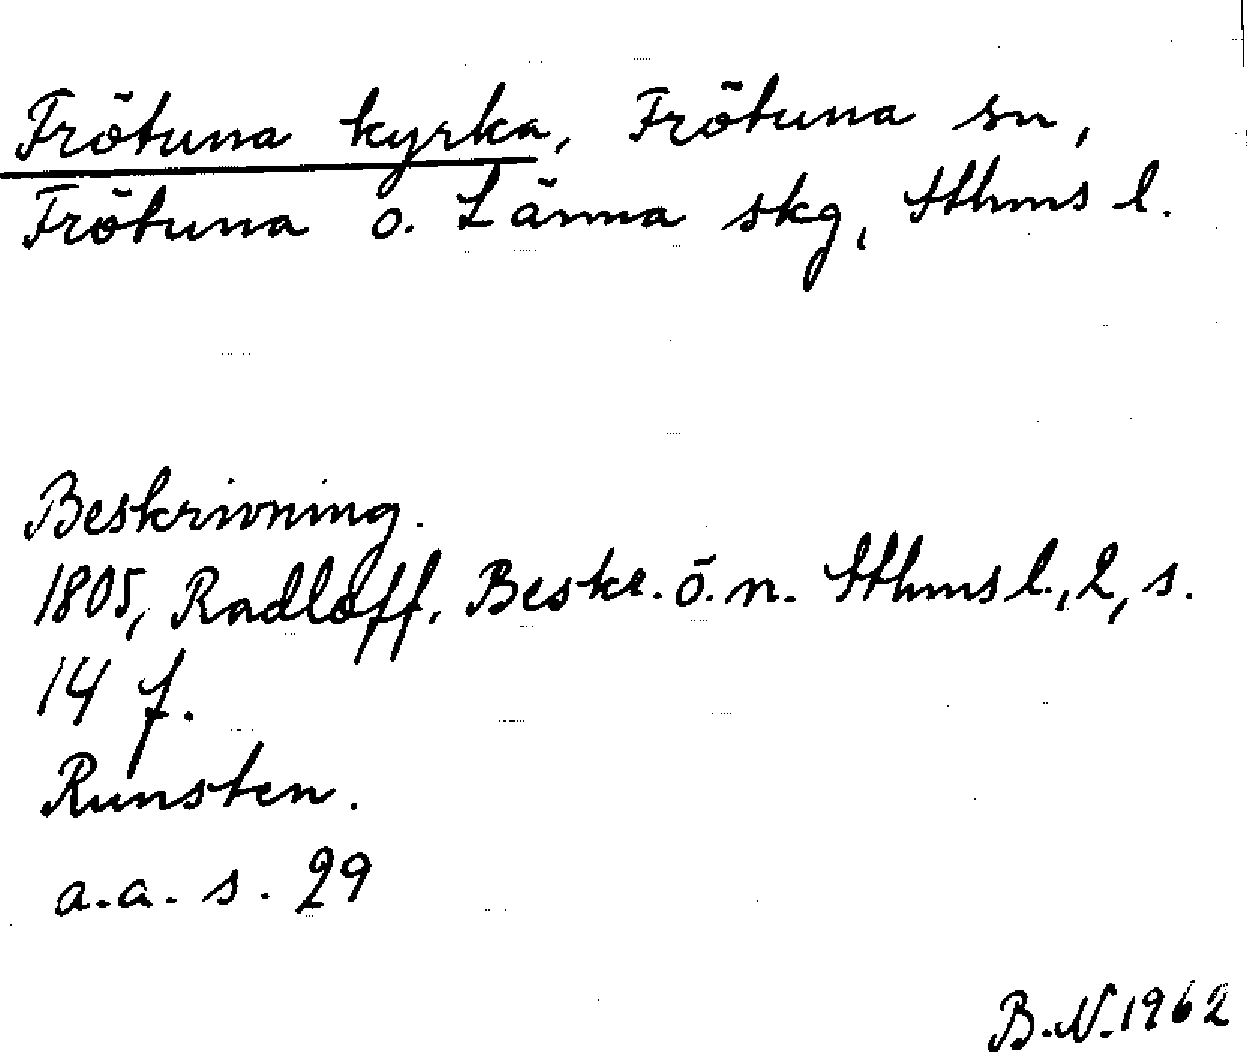 Frötuna kyrka, Frötuna sn,
Frötuna o. Länna skg, Sthms l.
Beskrivning.
1805, Radloff, Beskr. ö. n. Sthms l., 2, s.
14 f.
Runsten.
a.a. s. 29
B.N. 1962